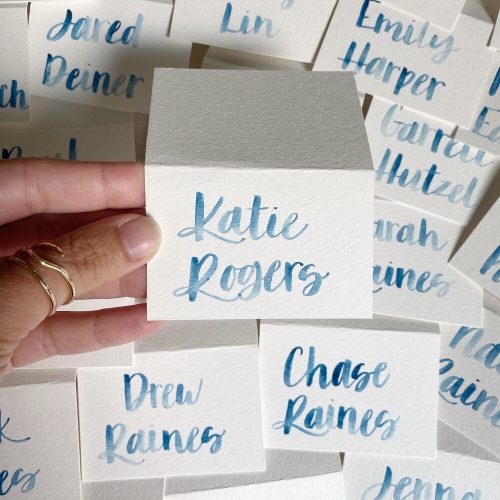 Jared
Deiner
Lin
Emily
Harper
Garrett
Hutzel
Katie
Rogers
Raines
Drew
Raines
Chase
Raines